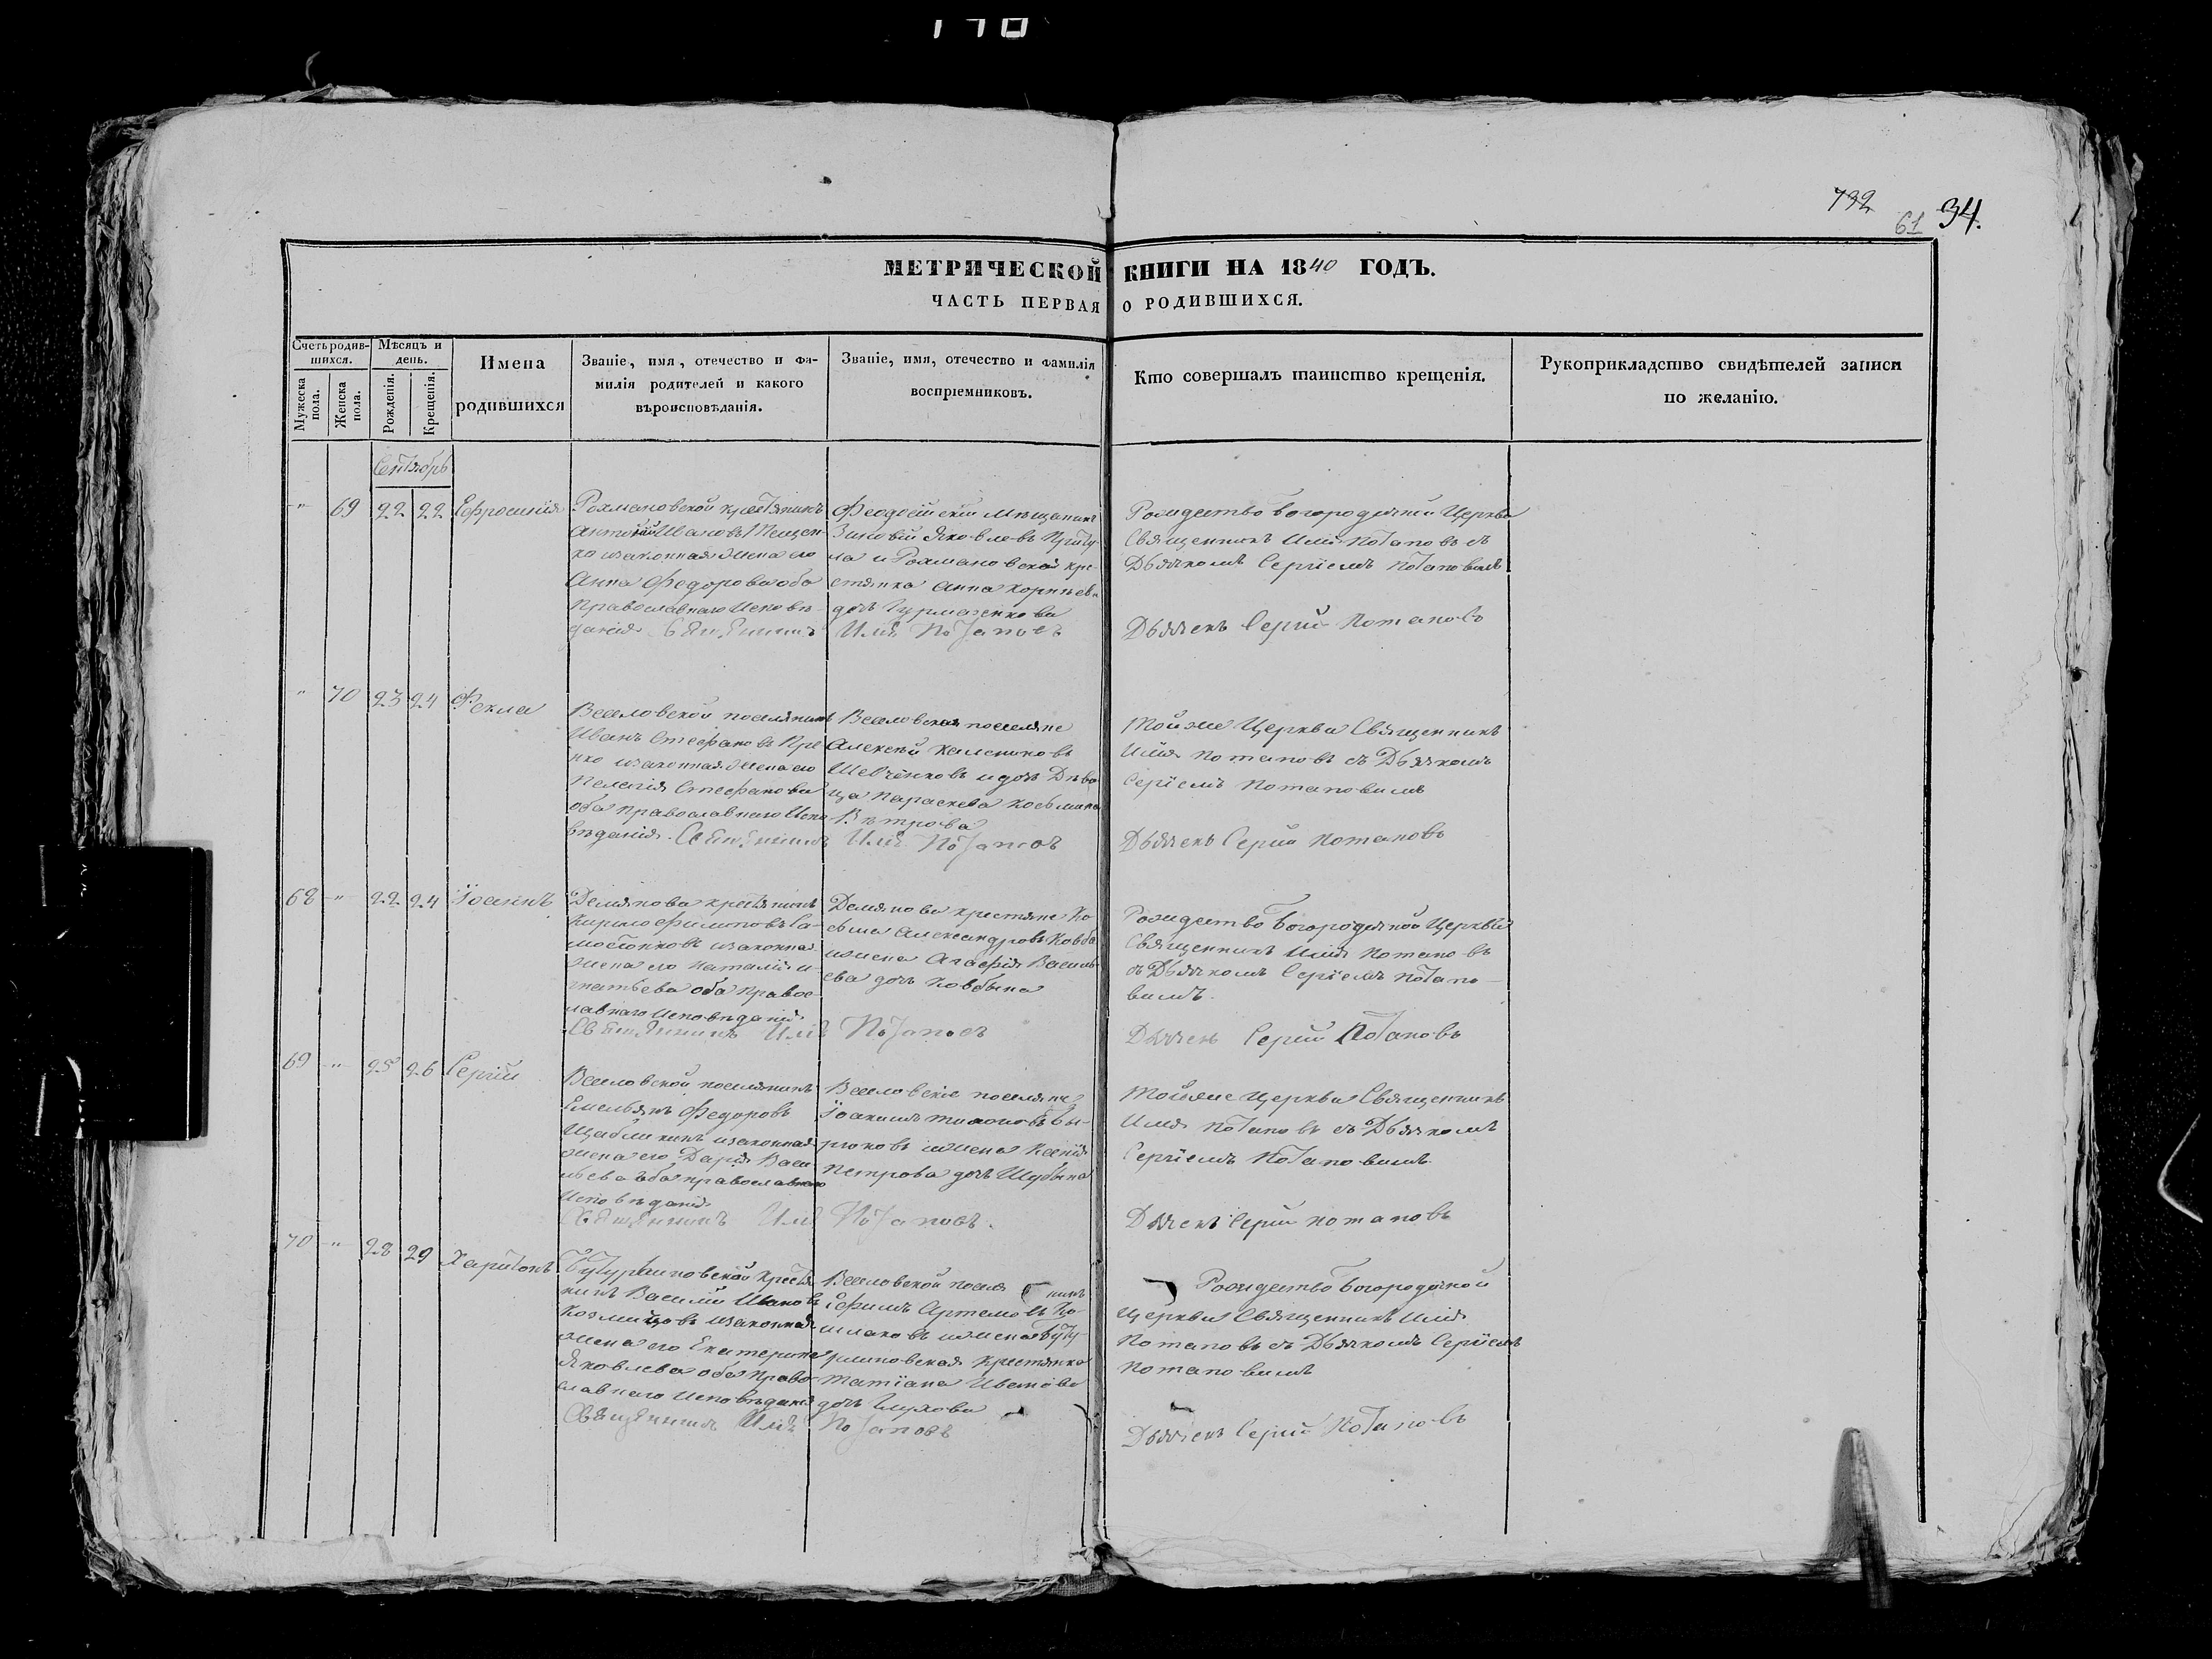 732
61 34.
МЕТРИЧЕСКОЙ КНИГИ НА 1840 ГОДЪ.
ЧАСТЬ ПЕРВАЯ О РОДИВШИХСЯ.
Счетъ родив-
шихся.
Мужеска
пола.
Женска
пола.
Мѣсяцъ и
день.
Рожденія.
Крещенія.
Имена
родившихся
Званіе, имя, отечество и фа-
милія родителей и какого
вѣроисповѣданія.
Званіе, имя, отечество и фамилія
воспріемниковъ.
Кто совершалъ таинство крещенія.
Рукоприкладство свидѣтелей записи
по желанію.
Сентябрь
" 69 22 22 Ефросинія
Рохмановской крестянинъ
Ивановъ
законная жена его
Анна Федорова оба
Православнаго Исповѣ-
данія. Священникъ
Феодосійскій Мѣщанинъ
Зиновій Яковлевъ Приту-
ла и Рохмановская кре-
стянка Анна Корнѣева
дочь
Илія Потаповъ
Рождество Богородичной Церкви
Священникъ Илія Потаповъ съ
Дьячкомъ Сергіемъ Потаповимъ
Дьячекъ Сергій Потаповъ
" 70 23 24 Фекла
Веселовской поселянинъ
Иванъ Стефановъ
законная жена его
Пелагія Стефанова
оба православнаго Испо-
вѣданія. Священникъ
Веселовская поселяне
Алексѣй
Шевченковъ и дочь Дѣви-
ца Параскева Косьмина
Вѣтрова
Илія Потаповъ
Тойже Церкви Священникъ
Илія Потаповъ съ Дьячкомъ
Сергіемъ Потаповимъ
Дьячекъ Сергій Потаповъ
68 " 22 24 Іоаннъ
Демянова крестянинъ
Кирило Филиповъ Са-
мостонковъ изаконная
жена его Наталія И-
гнатьева оба Правос-
лавнаго Исповѣданія
Священникъ Илія
Демянова крестяне Ко-
сьма Александровъ Ковба
ижена Агафія Василь-
ева дочь Ковбына
Потаповъ
Рождество Богородичной Церкви
Священникъ Илія Потаповъ
съ Дьячкомъ Сергіемъ Потапо-
вимъ.
Дьячекъ Сергій Потаповъ
69 " 25 26 Сергій
Веселовской поселянинъ
Емельянъ Федоровъ
изаконная
жена его Дарія Васи-
льева оба православнаго
Исповѣданія
Священникъ Илія
Веселовскіе поселяне
Іоакимъ
ижена Ксенія
Петрова дочь
Потаповъ.
Тойже Церкви Священникъ
Илія Потаповъ съ Дьячкомъ
Сергіемъ Потаповимъ
Дьячекъ Сергій Потаповъ
70 " 28 29 Харитонъ
Бутурлиновской Крестя-
нинъ Василій Ивановъ
изаконная
жена его Екатерина
Яковлева оба право-
славнаго Исповѣданія
Священникъ Илія
Веселовской поселянинъ
Ефимъ Артемовъ Ко-
ижена Буту-
рлиновская Крестянка
Татіана Иванова
дочь Глухова
Потаповъ
Рождество Богородичной
Церкви Священникъ Илія
Потаповъ съ Дьячкомъ Сергіемъ
Потаповимъ
Дьячекъ Сергій Потаповъ